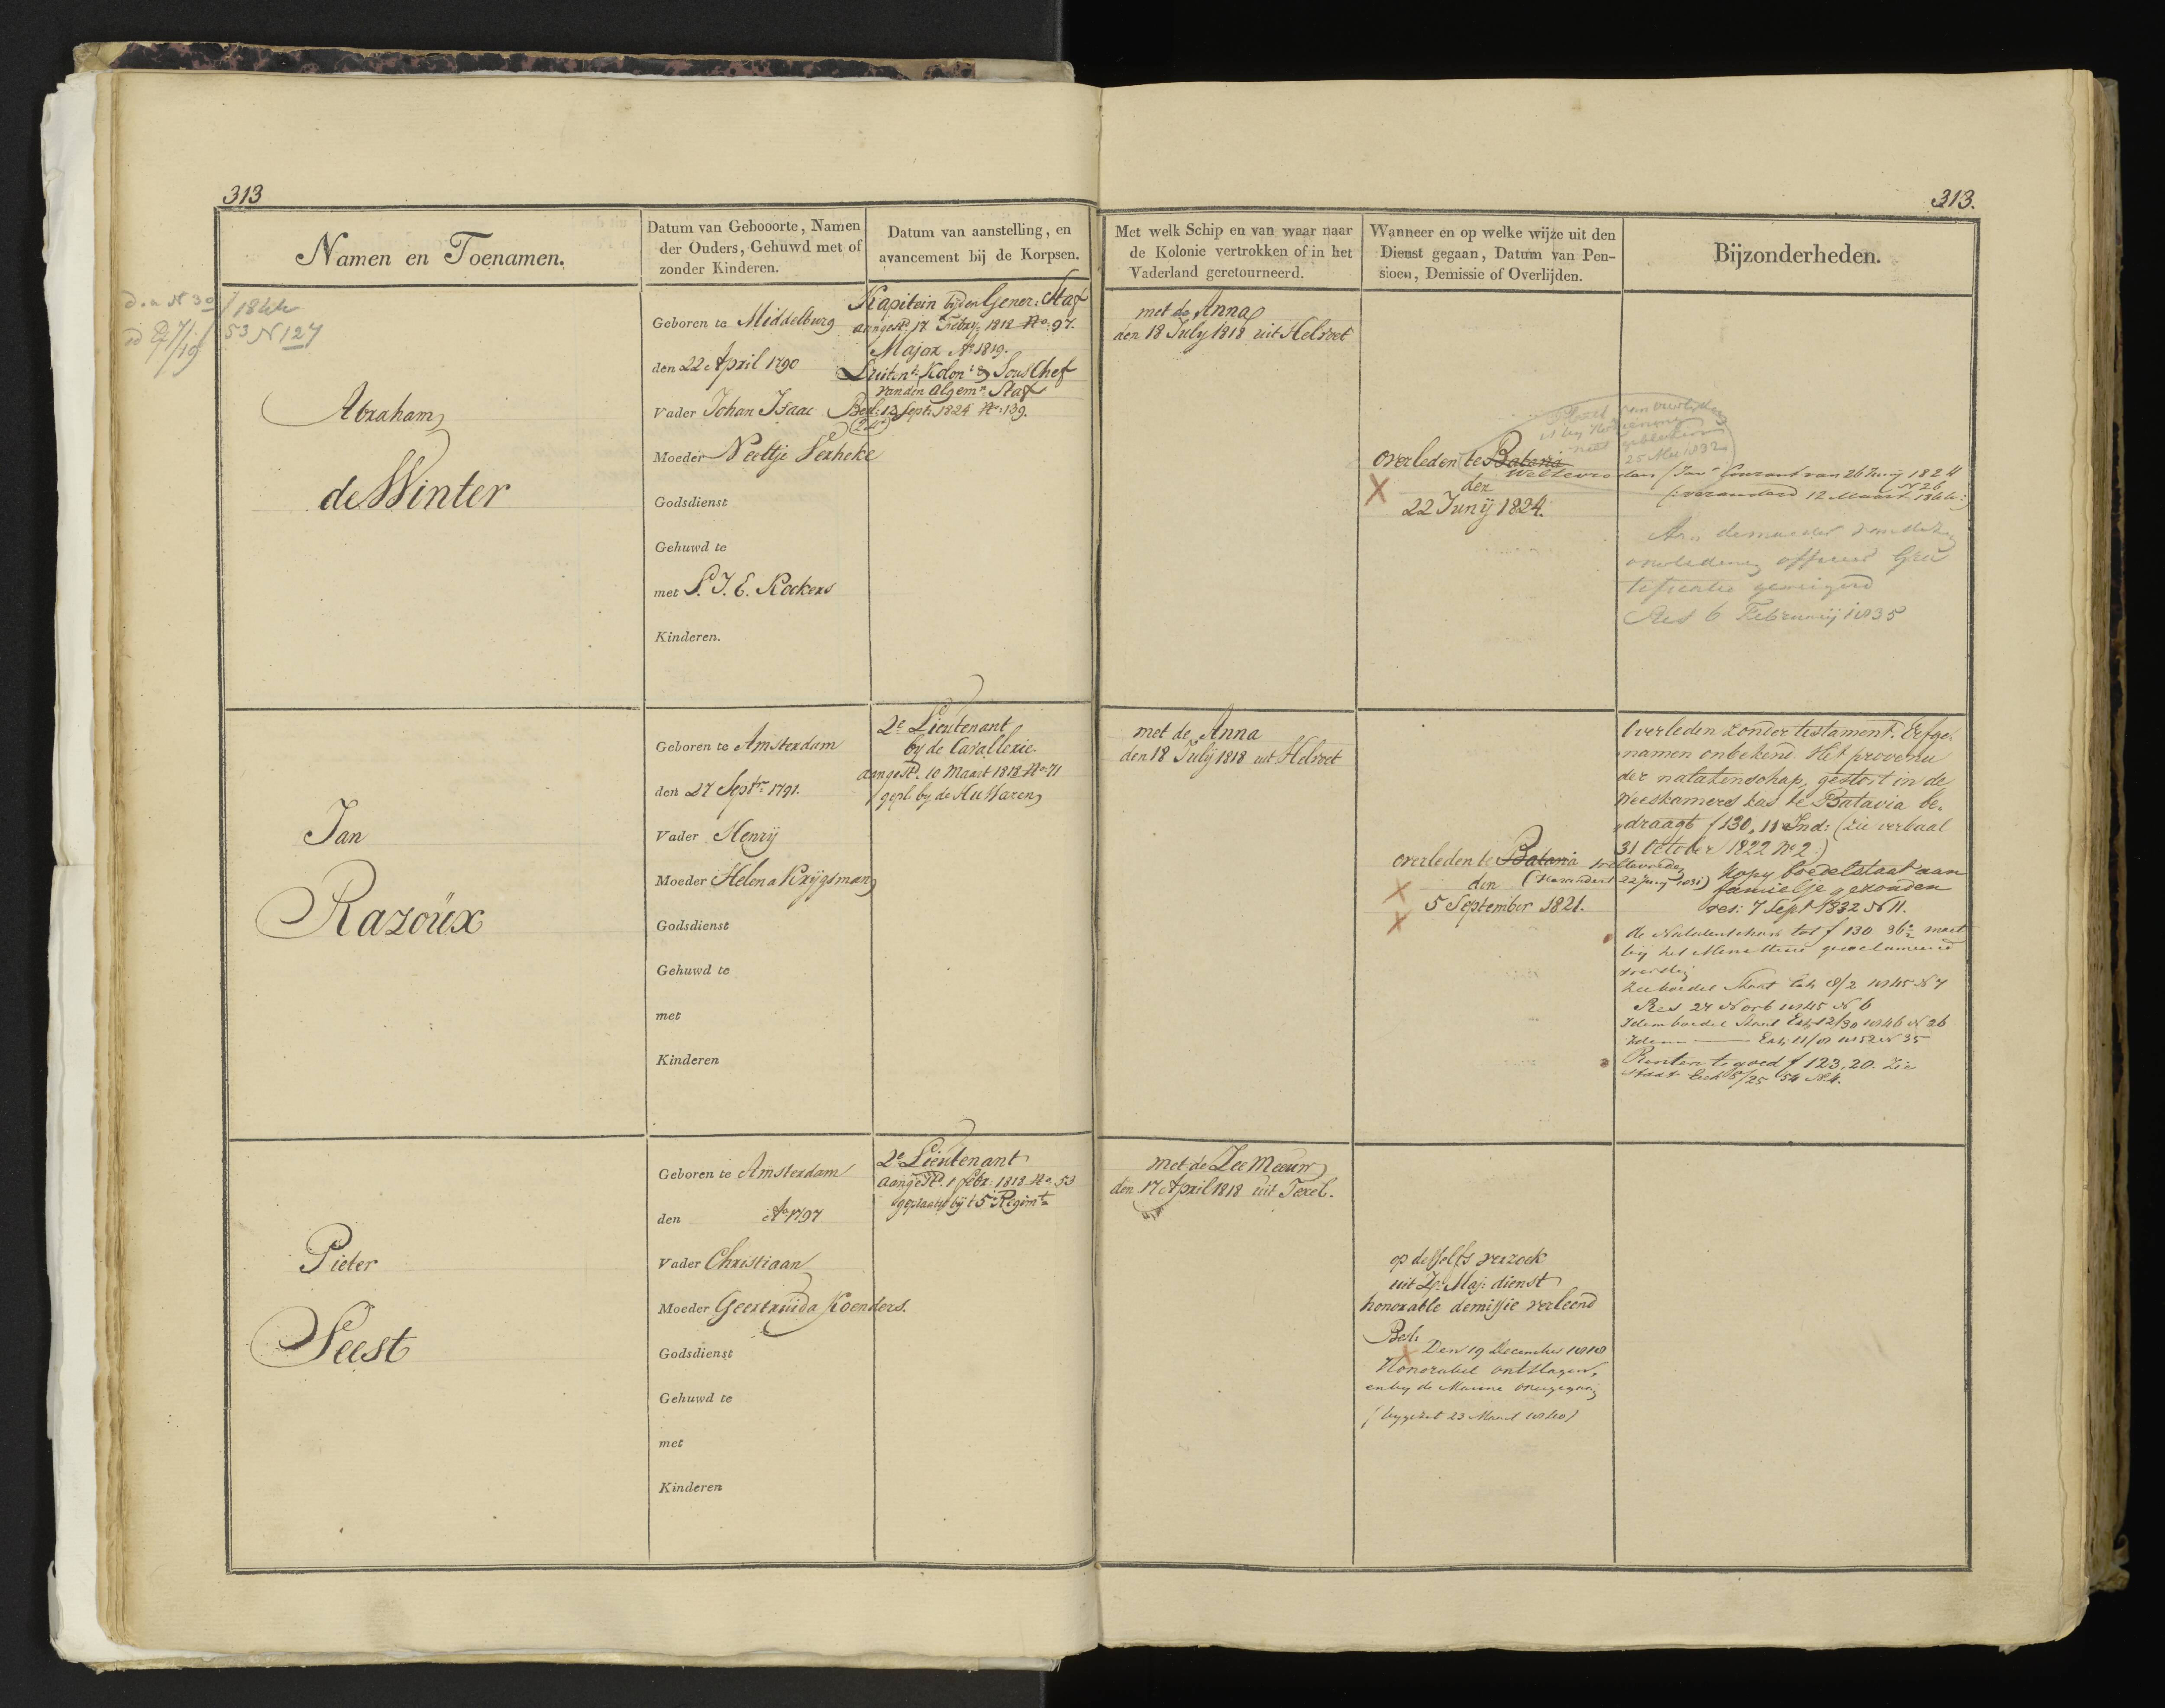 313
313.
Namen en Toenamen.
Datum van Gebooorte, Namen
der Ouders, Gehuwd met of
zonder Kinderen.
Datum van aanstelling, en
avancement bij de Korpsen.
Met welk Schip en van waar naar
de Kolonie vertrokken of in het
Vaderland geretourneerd.
Wanneer en op welke wijze uit den
Dienst gegaan, Datum van Pen-
sioen, Demissie of Overlijden.
Bijzonderheden.
53 N 127
Abraham
de Winter
Geboren te Middelburg
den 22 April 1790
Vader Johan Isaac
Moeder Neeltje Verheke
Godsdienst
Gehuwd te
met P. J. E. Rockers
Kinderen.
Kapitein bij den Gener: Staf
aangest. 17 Febry: 1818 No: 97.
Major Ao 1819.
Luitent. Kolon: & Sous Chef
van den Algemn. Staf
Besl: 13 Sept: 1824 No: 139.
met de Anna
den 18 July 1818 uit Helvoet
25 Mei 1832
overleden te Batavia
Weltevreden (Jav. Courant van 26 Junij 1824
N 26
den
(veranderd 12 Maart 1844:)
22 Junij 1824.
Aan de moeder van dezen
overledenen officier Gra
tificatie geweigerd
Res 6 Februarij 1835
Jan
Razoüx
Geboren te Amsterdam
den 27 Septr. 1791.
Vader Henrij
Moeder Helena Krijgsman
Godsdienst
Gehuwd te
met
Kinderen
2e Lieutenant
bij de Cavallerie
aangest. 10 Maart 1818 No 71
gepl. by de Hussaren
met de Anna
den 18 Julij 1818 uit Helvoet
overleden te Batavia Weltevreden
den (Veranderd 22 Junij 1831)
5 September 1821.
Overleden zonder testament. Erfge-
namen onbekend. Het provenu
der nalatenschap, gestort in de
Weeskamers kas te Batavia be-
draagt f 130,11 Ind: (Zie verbaal
31 October 1822 No 2.)
Kopy boedelstaat aan
familje gezonden
res: 7 Sept 1832 N 11.
de Nalatenschap tot f 130 36 moet
bij het Ministerie gereclameerd
worden
Zie boedel Staat Exh 8/2 1845 N 7
Res 27 Novb 1845 N 6
Idem boedel Staat Exh 12/30 1846 N 26
Idem — Exh 11/8 1852 N 35
Renten tegoed f 123,20. Zie
Staat Exh 8/25 54 N 4.
Pieter
Seest
Geboren te Amsterdam
den Ao 1797
Vader Christiaan
Moeder Geertruida Koenders.
Godsdienst
Gehuwd te
met
Kinderen
2e Lieutenant
aangest. 1 Febr: 1818 No. 53
geplaatst bij t 5e Regimt.
met de Zee Meeuw
den 17 April 1818 uit Texel.
op desselfs verzoek
uit Zr. Maj: dienst
honorable demissie verleend
Besl:
Den 19 December 1818
Honorabel ontslagen,
en bij de Marine overgegaan
(bygezet 23 Maart 1840)